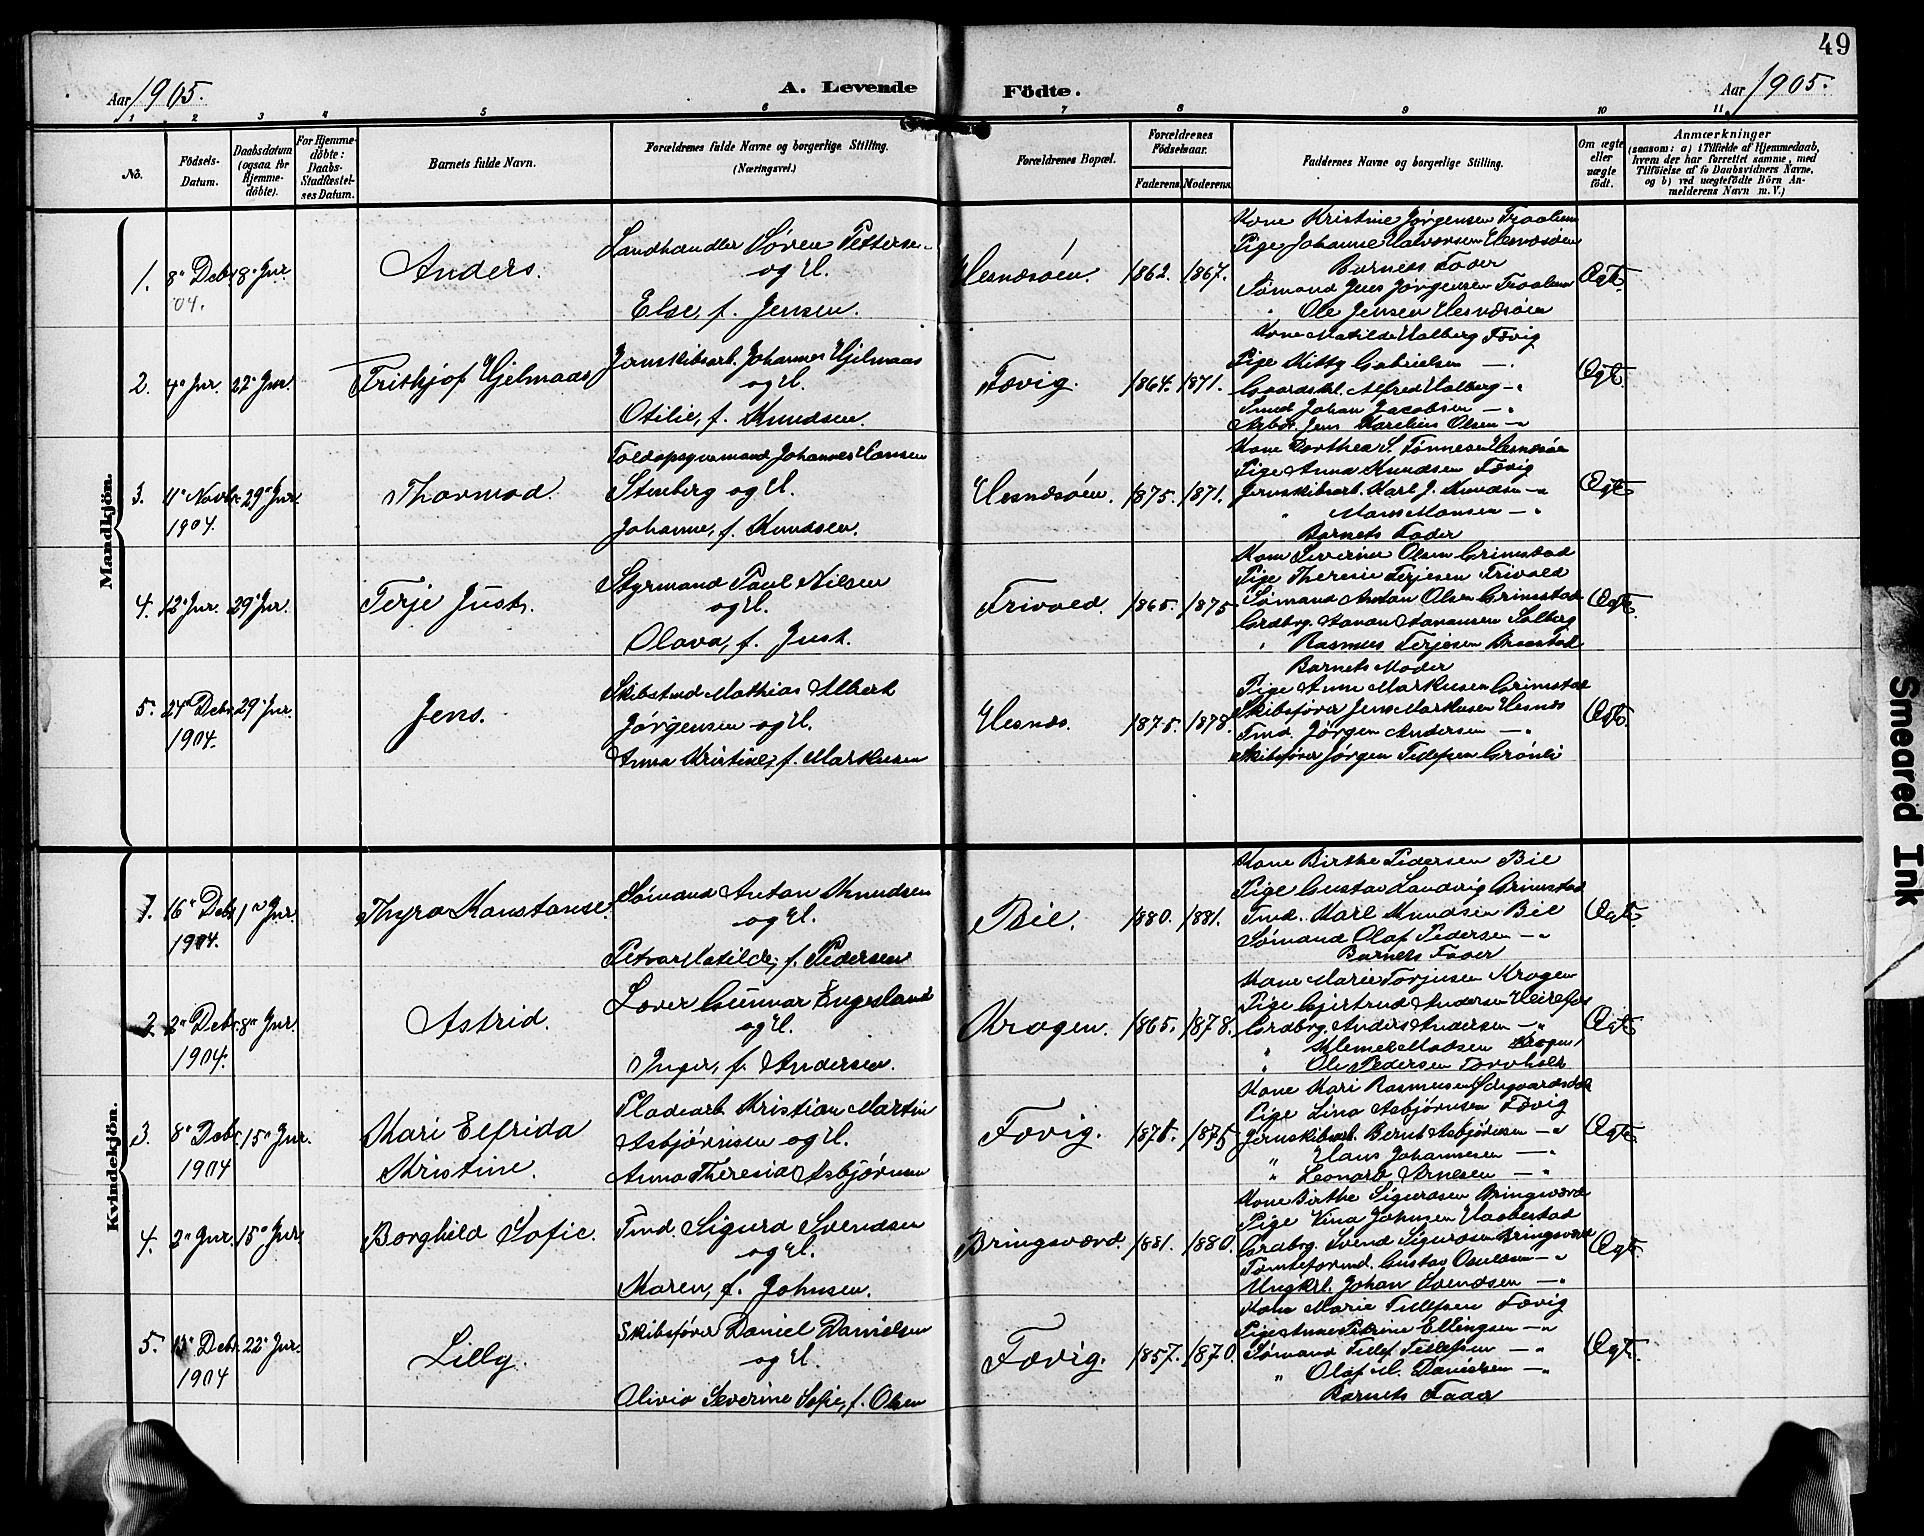 49
Aar 1905.
A. Levende
Födte.
Aar 1905.
1 2 3 4 5 6 7 8 9 10 11
No.
Födsels-Datum.
Daabsdatum (ogsaa for Hjemme-döbte).
For Hjemme-döbte: Daabs-Stadfæstel-ses Datum.
Barnets fulde Navn.
Forældrenes fulde Navne og borgerlige Stilling. (Næringsvei.)
Forældrenes Bopæl.
Forældrenes Födselsaar.
Faderens. Moderens.
Faddernes Navne og borgerlige Stilling.
Om ægte eller uægte födt.
Anmærkninger
(saasom: a) i Tilfælde af Hjemmedaab, hvem der har forrettet samme, med Tilföielse af to Daabsvidners Navne, og b) ved uægtefödte Börn An-melderens Navn m. V.)
Mandkjön.
1. 8' Debr. 04. 8' Jnr. Anders.
Landhandler Søren Pettersen
og H.
Else, f. Jensen.
Hesnæsøen. 1862. 1867.
Kone Kristine Jørgensen
Pige Johanne Halvorsen Hesnæsøen
Barnets Fader
Sømand Jens Jørgensen
" Ole Jensen Hesnæsøen
Ægte.
2. 4' Jnr. 22' Jnr. Frithjof Hjelmaas
Jernskibsarb. Johannes Hjelmaas
og H.
Otilie, f. Knudsen.
Fævig. 1864. 1871.
Kone Matilde Halberg Fævig
Pige Kitty Gabrielsen — "
Gaardskl. Alfred Halberg — "
Smed Johan Jacobsen — "
Arbdr. Jens Karelius Olsen — "
Ægte.
3. 4' Novbr. 1904. 29' Jnr. Thormod.
Toldopsynsmand Johannes Hansen
Stenberg og H.
Johanne, f. Knudsen.
Hesnæsøen. 1875. 1871.
Kone Dorthea S. Tønnesen Hesnæsøen
Pige Anna Knudsen Fævig
Jernskibsarb. Karl J. Knudsen — "
" Hans Hansen — "
Barnets Fader
Ægte
4. 12' Jnr. 29' Jnr. Terje Just.
Styrmand Paul Nilsen
og H.
Olava, f. Just.
Frivold. 1865. 1875
Kone Severine Olsen Grimstad
Pige Theresie Terjesen Frivold
Sømand Anton Olsen Grimstad
Grdbrg. Aanon Aanonsen Solberg
" Rasmus Terjesen
Barnets Moder
Ægte.
5. 24' Debr. 1904. 29' Jnr. Jens.
Skibstmd Mathias Albert
Jørgensen og H.
Anna Kristine, f. Markusen
Hesnæs. 1875. 1878.
Pige Anne Markusen Grimstad
Skibsfører Jens Markusen Hesnæs
Tmd. Jørgen Andersen — "
Skibsfører Jørgen Tellefsen Grønli
Ægte.
Kvindekjön.
1. 16' Debr. 1904. 1' Jnr Thyra Konstanse.
Sømand Anton Knudsen
og H.
Petra Matilde, f. Pedersen
Bie. 1880. 1881.
Kone Birthe Pedersen Bie
Pige Gustav Landvig Grimstad
Tmd. Karl Knudsen Bie
Sømand Olaf Pedersen — "
Barnets Fader
Ægte.
2. 2' Debr. 1904. 8' Jnr. Astrid.
Lærer Gunnar Engesland
og H.
Inger, f. Andersen.
Kragen. 1865. 1878.
Kone Marie Torjusen Kragen
Pige Gjertrud Andersen
Grdbrg. Anders Andersen — "
" Klemet Madsen Kragen
" Ole Pedersen
Ægte
3. 8' Debr. 1904 15' Jnr. Kari Elfrida
Kristine.
Pladearb. Kristian Martin
Asbjørnsen og H.
Anna Theresia Asbjørnsen
Fævig. 1875. 1875
Kone Kari Rasmusen
Pige Lina Asbjørnsen Fævig
Jernskibsarb. Bernt Asbjørnsen — "
" Hans Johannesen — "
" Leonard Arnesen — "
Ægte.
4. 2' Jnr. 15' Jnr. Borghild Sofie.
Tmd. Sigurd Svendsen
og H.
Maren, f. Johnsen.
Bringsværd. 1881. 1880.
Kone Birthe Sigurdsen Bringsværd
Pige Kina Johnsen Haabestad
Grdbrg. Svend Sigurdsen Bringsværd
Tømteformd. Gustav — "
Ungkrl. Johan Svendsen — "
Ægt.
5. 13' Debr. 1904 22' Jnr. Lilly.
Skibsfører Daniel Danielsen
og H.
Olivia Severine Sofie, f. Olsen
Fævig. 1857. 1870.
Kone Marie Tellefsen Fævig
Pige Anne Petrine Ellingsen — "
Sømand Tellef Tellefsen — "
" Olaf M. Danielsen — "
Barnets Fader
Ægt.
Smeared Ink